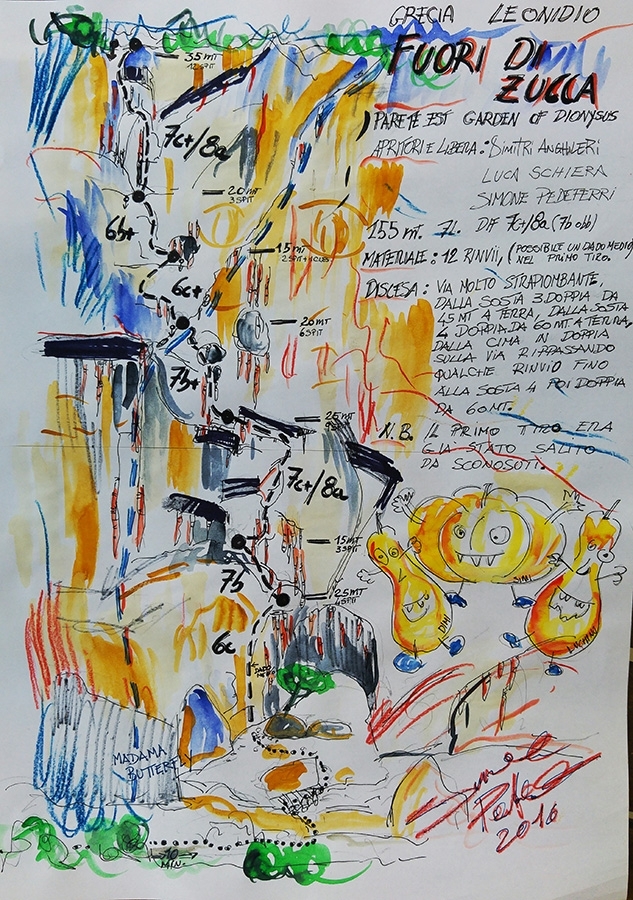 GRECIA LEONIDIO
FUORI DI
ZUCCA
PARETE EST GARDEN OF DIONYSUS
APRITORI E LIBERA: DIMITRI ANGHILERI
LUCA SCHIERA
SIMONE PEDEFERRI
155 mt. 7L. DIF 7c+/8a (7b obb)
MATERIALE: 12 RINVII, (POSSIBILE UN DADO MEDIO
NEL PRIMO TIRO.
DISCESA: VIA MOLTO STRAPIOMBANTE,
DALLA SOSTA 3 DOPPIA DA
45 MT A TERRA, DALLA SOSTA
4 DOPPIA DA 60 MT. A TERRA,
DALLA CIMA IN DOPPIA
SULLA VIA RIPASSANDO
QUALCHE RINVIO FINO
ALLA SOSTA 4 POI DOPPIA
DA 60 MT.
N.B. IL PRIMO TIRO ERA
GIÀ STATO SALITO
DA SCONOSUTI.
35 MT
12 SPIT
7c+/8a
20 mt
3 SPIT
6b+
15 mt
2 SPIT+
6c+
20 mt
6 SPIT
7b+
25 mt
9 SPIT
7c+/8a
15 mt
3 SPIT
7b
25 mt
4 SPIT
6c
DADO
SIMI
DIMI
MADAMA
BUTTERFLY
2016
10
MIN.